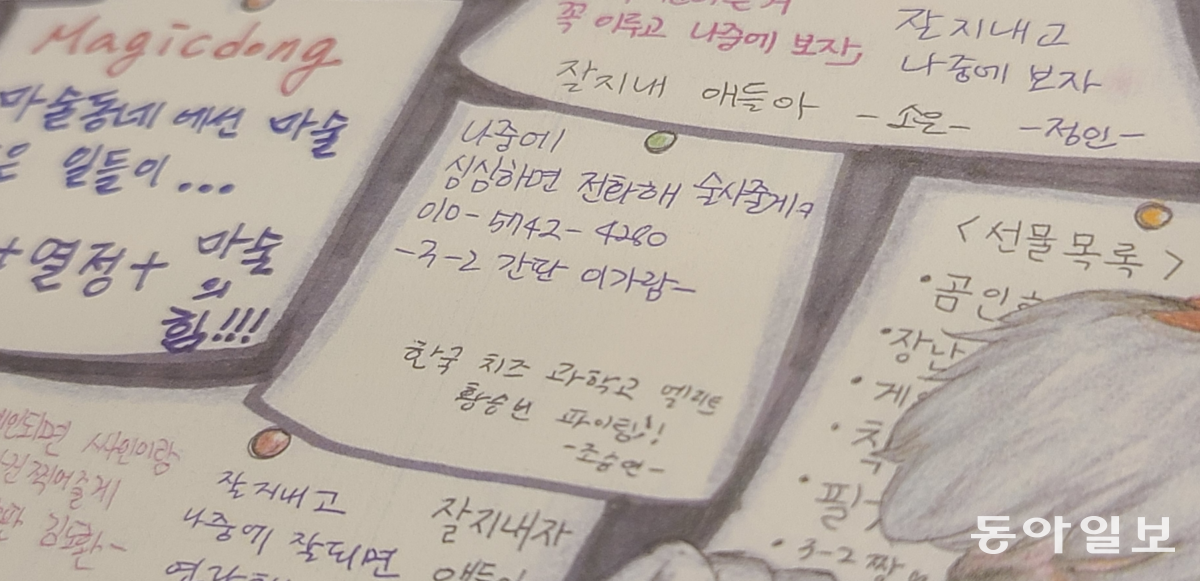 Magicdong
마술동네에선 마술
은 일들이...
+열정+ 마술
의
힘!!!
꼭 이루고 나중에 보자,
잘지내 애들아 -소은-
잘지내고
나중에 보자
-정인-
나중에
심심하면 전화해 술사줄게ㅋ
010-5742-4280
-3-2 간판 이가람-
한국 치즈 과학고 엘리트
황승빈 파이팅!!
-조승연-
<선물목록>
•곰인
•장난
•게
•
•필
•3-2 짱
되면 싸인이랑
찍어줄게
김도환-
잘지내고
나중에 잘되면
잘지내자
동아일보